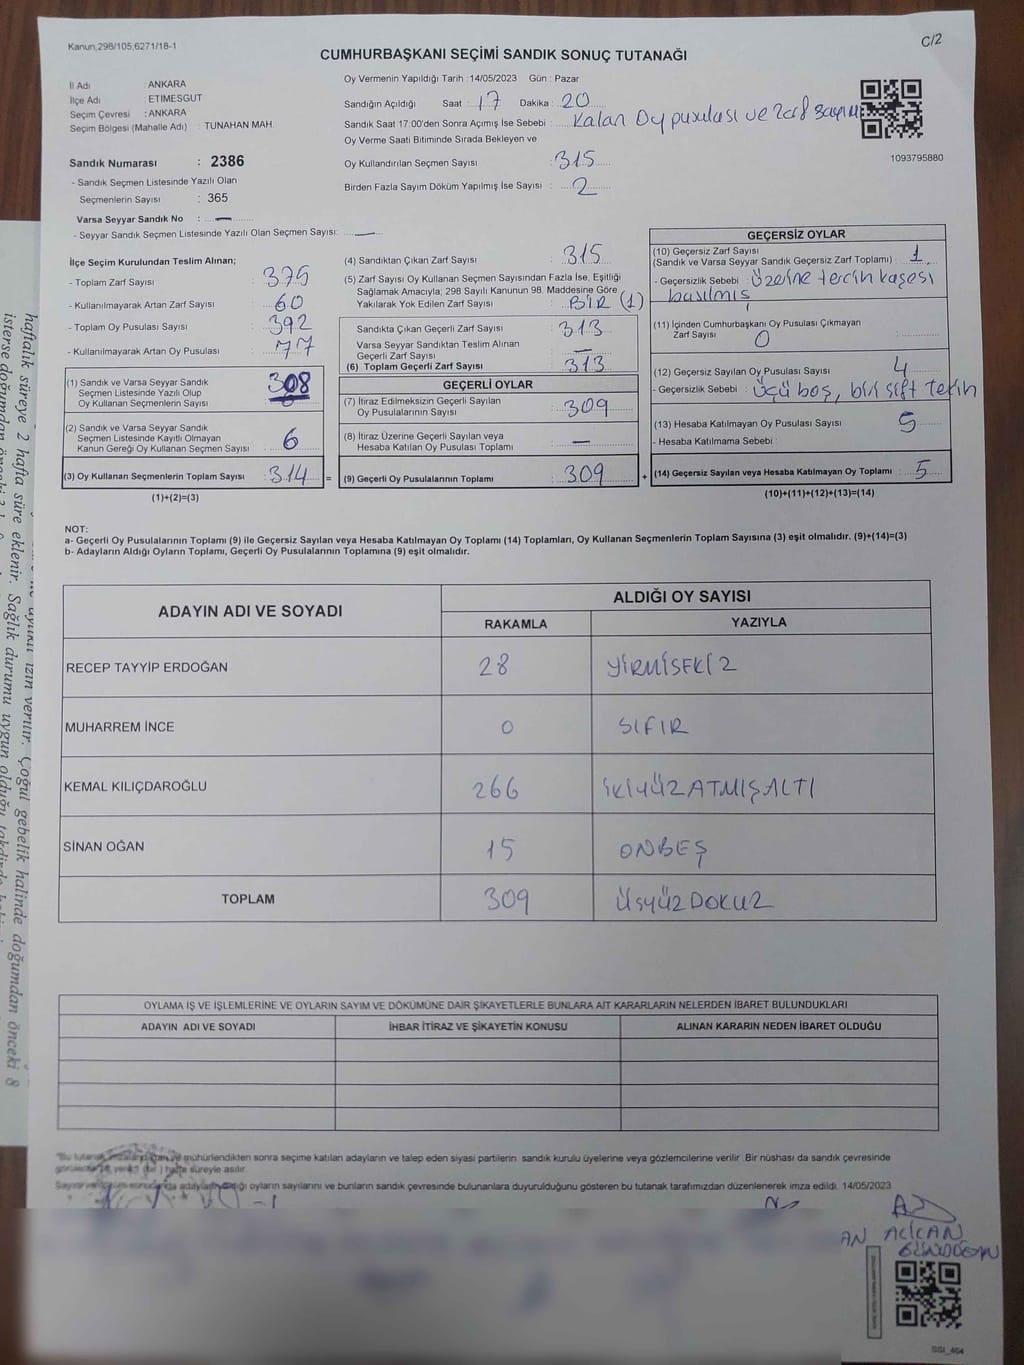 Kanun,298/105,6271/18-1
C/2
CUMHURBAŞKANI SEÇİMİ SANDIK SONUÇ TUTANAĞI
İl Adı : ANKARA
İlçe Adı : ETİMESGUT
Seçim Çevresi : ANKARA
Seçim Bölgesi (Mahalle Adı) : TUNAHAN MAH.
Sandık Numarası : 2386
- Sandık Seçmen Listesinde Yazılı Olan
Seçmenlerin Sayısı : 365
Varsa Seyyar Sandık No : —
- Seyyar Sandık Seçmen Listesinde Yazılı Olan Seçmen Sayısı: —
Oy Vermenin Yapıldığı Tarih :14/05/2023 Gün : Pazar
Sandığın Açıldığı Saat : 17 Dakika : 20
Sandık Saat 17:00'den Sonra Açımış İse Sebebi : Kalan Oy pusulası ve zarf sayımı
Oy Verme Saati Bitiminde Sırada Bekleyen ve
Oy Kullandırılan Seçmen Sayısı : 315
Birden Fazla Sayım Döküm Yapılmış İse Sayısı : 2
1093795880
İlçe Seçim Kurulundan Teslim Alınan;
- Toplam Zarf Sayısı : 375
- Kullanılmayarak Artan Zarf Sayısı : 60
- Toplam Oy Pusulası Sayısı : 392
- Kullanılmayarak Artan Oy Pusulası : 77
(1) Sandık ve Varsa Seyyar Sandık
Seçmen Listesinde Yazılı Olup
Oy Kullanan Seçmenlerin Sayısı : 308
(2) Sandık ve Varsa Seyyar Sandık
Seçmen Listesinde Kayıtlı Olmayan
Kanun Gereği Oy Kullanan Seçmen Sayısı : 6
(3) Oy Kullanan Seçmenlerin Toplam Sayısı : 314 =
(1)+(2)=(3)
(4) Sandıktan Çıkan Zarf Sayısı : 315
(5) Zarf Sayısı Oy Kullanan Seçmen Sayısından Fazla İse, Eşitliği
Sağlamak Amacıyla; 298 Sayılı Kanunun 98. Maddesine Göre
Yakılarak Yok Edilen Zarf Sayısı : BİR (1)
Sandıkta Çıkan Geçerli Zarf Sayısı : 313
Varsa Seyyar Sandıktan Teslim Alınan
Geçerli Zarf Sayısı : —
(6) Toplam Geçerli Zarf Sayısı : 313
GEÇERLİ OYLAR
(7) İtiraz Edilmeksizin Geçerli Sayılan
Oy Pusulalarının Sayısı : 309
(8) İtiraz Üzerine Geçerli Sayılan veya
Hesaba Katılan Oy Pusulası Toplamı : —
(9) Geçerli Oy Pusulalarının Toplamı : 309 +
GEÇERSİZ OYLAR
(10) Geçersiz Zarf Sayısı
(Sandık ve Varsa Seyyar Sandık Geçersiz Zarf Toplamı) : 1
- Geçersizlik Sebebi : Üzerine tercih kaşesi
basılmış
(11) İçinden Cumhurbaşkanı Oy Pusulası Çıkmayan
Zarf Sayısı : 0
(12) Geçersiz Sayılan Oy Pusulası Sayısı : 4
- Geçersizlik Sebebi : Üçü boş, biri sift tercih
(13) Hesaba Katılmayan Oy Pusulası Sayısı : 5
- Hesaba Katılmama Sebebi :
(14) Geçersiz Sayılan veya Hesaba Katılmayan Oy Toplamı : 5
(10)+(11)+(12)+(13)=(14)
NOT:
a- Geçerli Oy Pusulalarının Toplamı (9) ile Geçersiz Sayılan veya Hesaba Katılmayan Oy Toplamı (14) Toplamları, Oy Kullanan Seçmenlerin Toplam Sayısına (3) eşit olmalıdır. (9)+(14)=(3)
b- Adayların Aldığı Oyların Toplamı, Geçerli Oy Pusulalarının Toplamına (9) eşit olmalıdır.
ADAYIN ADI VE SOYADI
ALDIĞI OY SAYISI
RAKAMLA YAZIYLA
RECEP TAYYİP ERDOĞAN 28 YİRMİSEKİZ
MUHARREM İNCE 0 SIFIR
KEMAL KILIÇDAROĞLU 266 İKİYÜZATMIŞALTI
SİNAN OĞAN 15 ONBEŞ
TOPLAM 309 ÜşyüzDOKUZ
OYLAMA İŞ VE İŞLEMLERİNE VE OYLARIN SAYIM VE DÖKÜMÜNE DAİR ŞİKAYETLERLE BUNLARA AİT KARARLARIN NELERDEN İBARET BULUNDUKLARI
ADAYIN ADI VE SOYADI İHBAR İTİRAZ VE ŞİKAYETİN KONUSU ALINAN KARARIN NEDEN İBARET OLDUĞU
mühürlendikten sonra seçime katılan adayların ve talep eden siyasi partilerin sandık kurulu üyelerine veya gözlemcilerine verilir. Bir nüshası da sandık çevresinde
süreyle asılır.
oyların sayılarını ve bunların sandık çevresinde bulunanlara duyurulduğunu gösteren bu tutanak tarafımızdan düzenlenerek imza edildi. 14/05/2023
AN ALİCAN
GÜNDOĞAN
haftalık süreye 2 hafta süre eklenir. Sağlık durumu uygun olduğu takdirde
izin verilir. Çoğul gebelik halinde doğumdan önceki 8